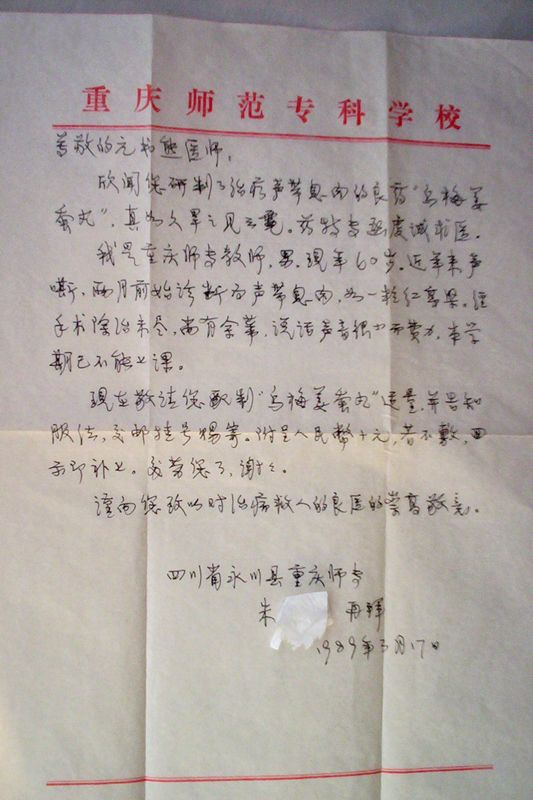 重庆师范专科学校
尊敬的元书熊医师:
欣闻您研制了治疗声带息肉的良药“乌梅姜
蚕丸”,真如久旱之见云霓。兹特专函虔诚求医。
我是重庆师专教师,男,现年60岁。近年来声
嘶,两月前始诊断为声带息肉,如一粒红苹果。经
手术除治未尽,尚有余蒂,说话声音很小而费力,本学
期已不能上课。
现在敬请您配制“乌梅姜蚕丸”适量,并告知
服法,交邮挂号赐寄。附呈人民币十元,若不敷,回
示即补上。多劳您了,谢谢。
谨向您致以对治病救人的良医的崇高敬意。
四川省永川县重庆师专
朱 再拜
1989年3月17日